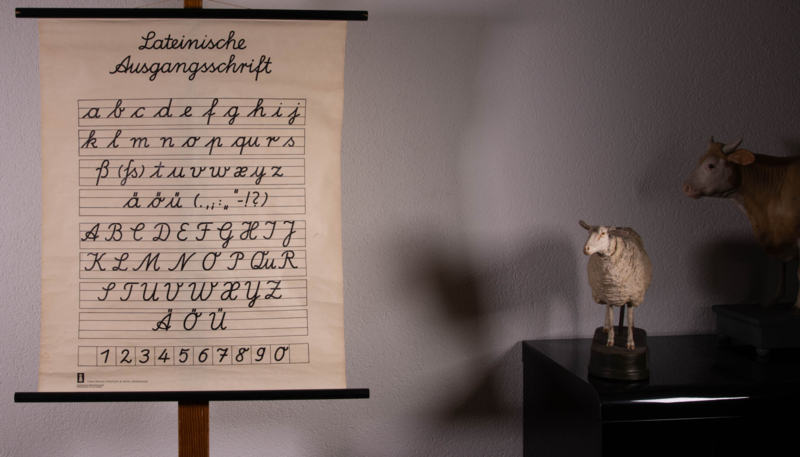 Lateinische
Ausgangsschrift
a b c d e f g h i j
k l m n o p qu r s
ß (ſs) t u v w x y z
ä ö ü (.,;:„“-!?)
A B C D E F G H I J
K L M N O P Qu R
S T U V W X Y Z
Ä Ö Ü
1 2 3 4 5 6 7 8 9 0